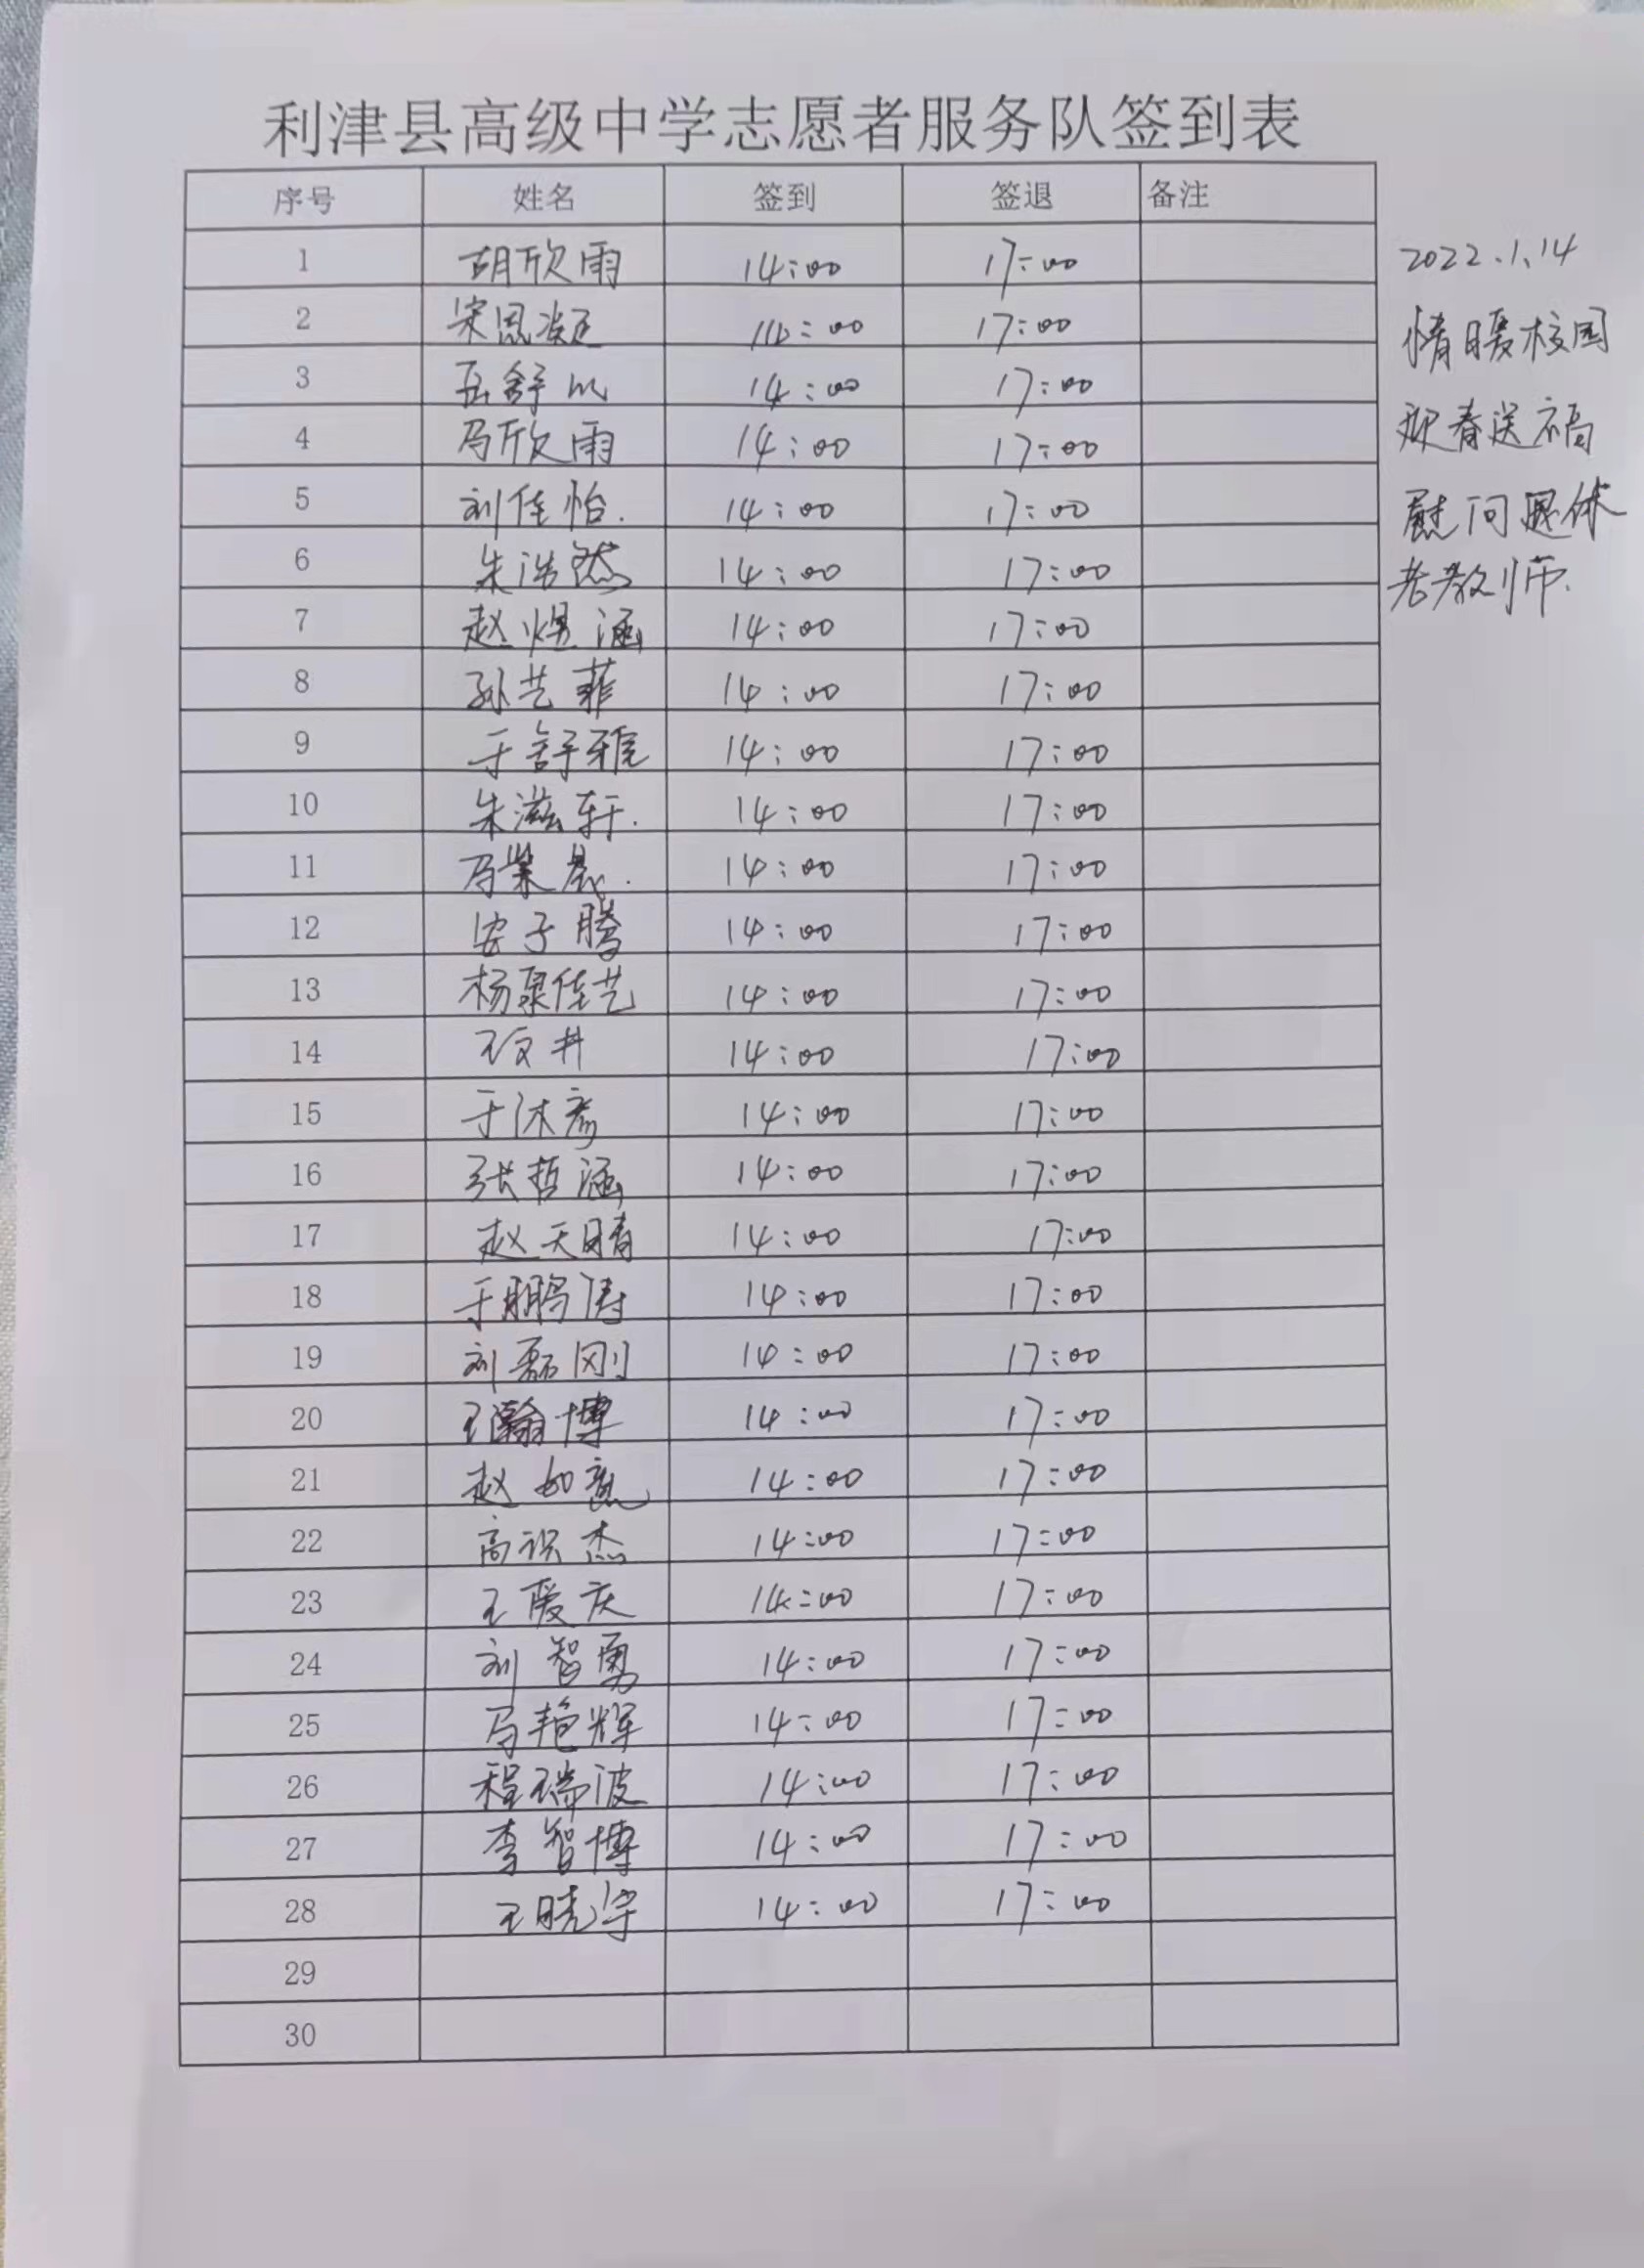 利津县高级中学志愿者服务队签到表
序号 姓名 签到 签退 备注
1 胡欣雨 14:00 17:00
2 宋恩凝 14:00 17:00
3 岳舒 14:00 17:00
4 马欣雨 14:00 17:00
5 刘佳怡. 14:00 17:00
6 朱浩然 14:00 17:00
7 赵煜涵 14:00 17:00
8 孙艺菲 14:00 17:00
9 于舒雅 14:00 17:00
10 朱滋轩. 14:00 17:00
11 马 14:00 17:00
12 安子腾 14:00 17:00
13 杨泉佳艺 14:00 17:00
14 14:00 17:00
15 于沐彦 14:00 17:00
16 张哲涵 14:00 17:00
17 赵天晴 14:00 17:00
18 于鹏涛 14:00 17:00
19 刘磊刚 14:00 17:00
20 王瀚博 14:00 17:00
21 赵如意 14:00 17:00
22 高识杰 14:00 17:00
23 王爱庆 14:00 17:00
24 刘智勇 14:00 17:00
25 马艳辉 14:00 17:00
26 程瑞波 14:00 17:00
27 李智博 14:00 17:00
28 王晓宇 14:00 17:00
29
30
2022.1.14
情暖校园
迎春送福
慰问退休
老教师.